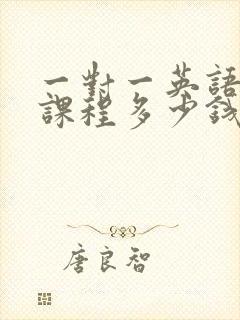 一對一英語
課程多少錢
唐良智